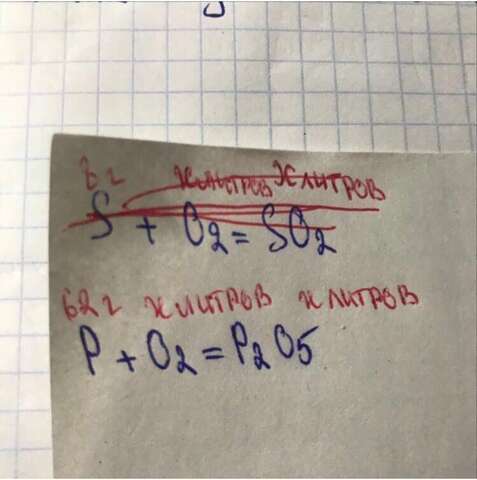 8 г х литров х литров
S + O2 = SO2
62 г х литров х литров
P + O2 = P2O5